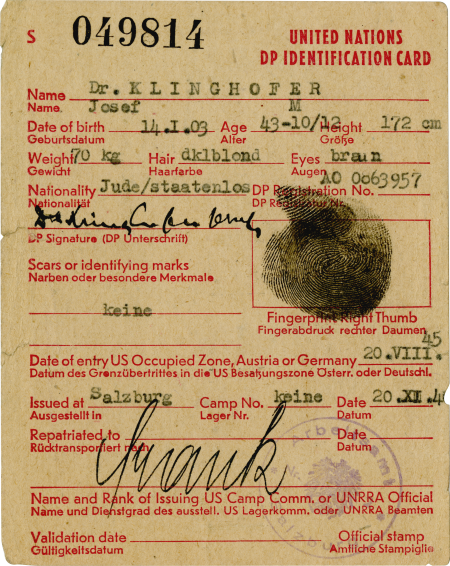 S 049814 UNITED NATIONS
DP IDENTIFICATION CARD
Name Dr. KLINGHOFER
Name. Josef M
Date of birth 14.I.03 Age 43-10/12 Height 172 cm
Geburtsdatum Alter Größe
Weight 70 kg Hair dklblond Eyes braun
Gewicht Haarfarbe Augen
Nationality Jude/staatenlos DP Registration No. AO 0063957
Nationalität DP Registratur Nr.
DP Signature (DP Unterschrift)
Scars or identifying marks
Narben oder besondere Merkmale
keine
Fingerprint Right Thumb
Fingerabdruck rechter Daumen
Date of entry US Occupied Zone, Austria or Germany 20.VIII.45
Datum des Grenzübertrittes in die US Besatzungszone Österr. oder Deutschl.
Issued at Salzburg Camp No. keine Date 20.XI.4
Ausgestellt in Lager Nr. Datum
Repatriated to Date
Rücktransportiert nach Datum
Name and Rank of Issuing US Camp Comm. or UNRRA Official
Name und Dienstgrad des ausstell. US Lagerkomm. oder UNRRA Beamten
Validation date Official stamp
Gültigkeitsdatum Amtliche Stampiglie
Arbeitsamt